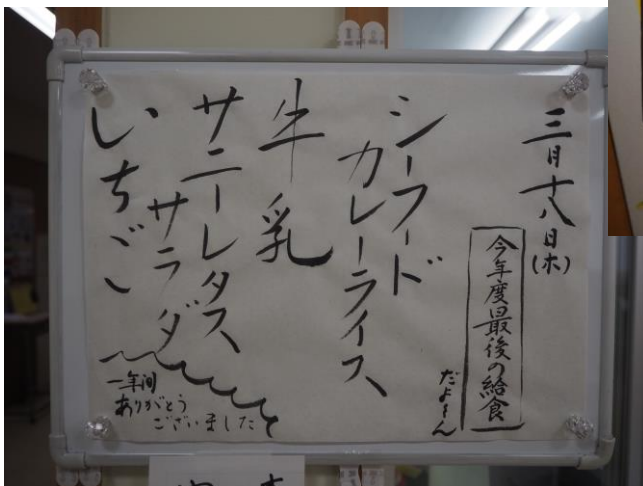 三月十八日(木)
今年度最後の給食
だよ〜ん
シーフード
カレーライス
牛乳
サニーレタス
サラダ
いちご
一年間
ありがとう
ございました